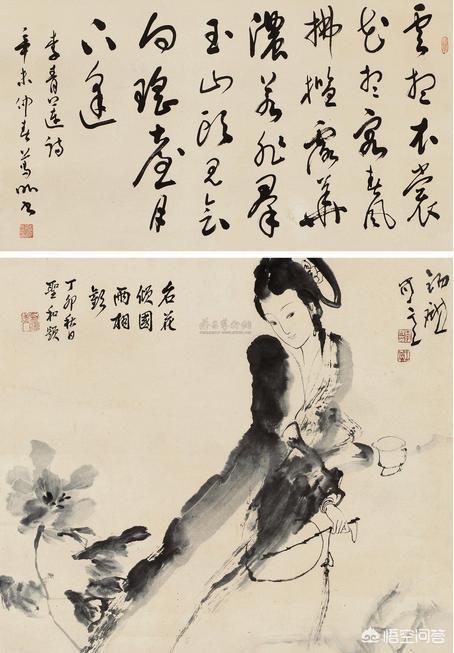 雲想衣裳
花想容春風
拂檻露華
濃若非群
玉山頭見會
向瑤臺月
下逢
李青蓮詩
辛未仲春
名花
傾國
兩相
歡
丁卯秋日
聖和題
悟空问答